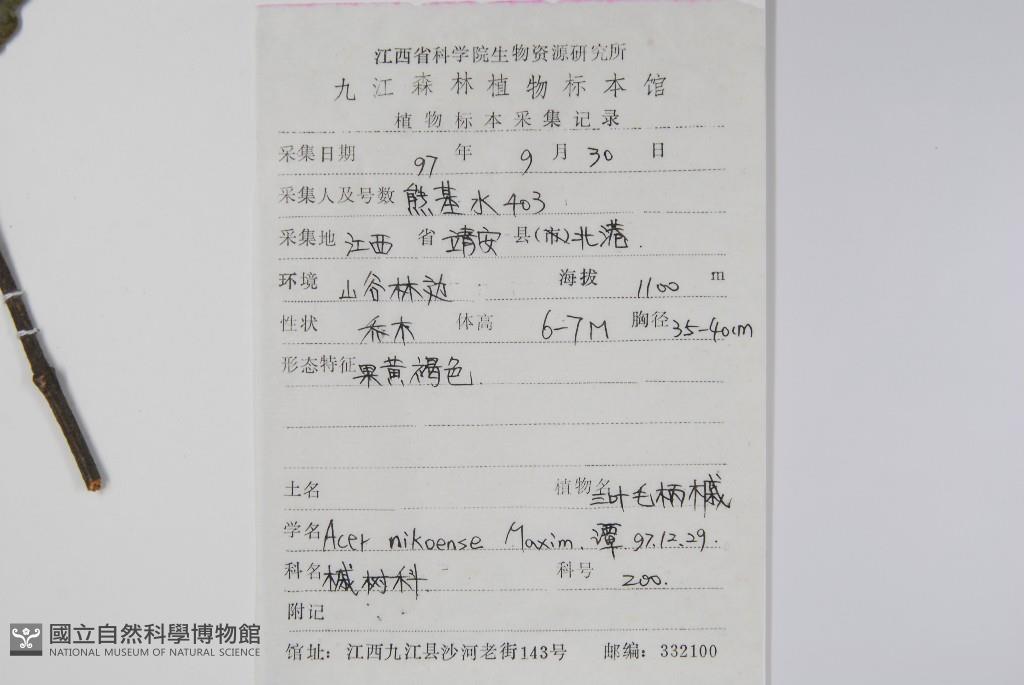 江西省科学院生物资源研究所
九江森林植物标本馆
植物标本采集记录
采集日期 97 年 9 月 30 日
采集人及号数 熊基水 403
采集地 江西 省 靖安 县(市)北港.
环境 山谷林边 海拔 1100 m
性状 乔木 体高 6-7M 胸径 35-40cm
形态特征 果黄褐色.
土名 植物名 三叶毛柄槭
学名 Acer nikoense Maxim. 谭 97.12.29.
科名 槭树科. 科号 200.
附记
馆址: 江西九江县沙河老街143号 邮编: 332100
國立自然科學博物館
NATIONAL MUSEUM OF NATURAL SCIENCE